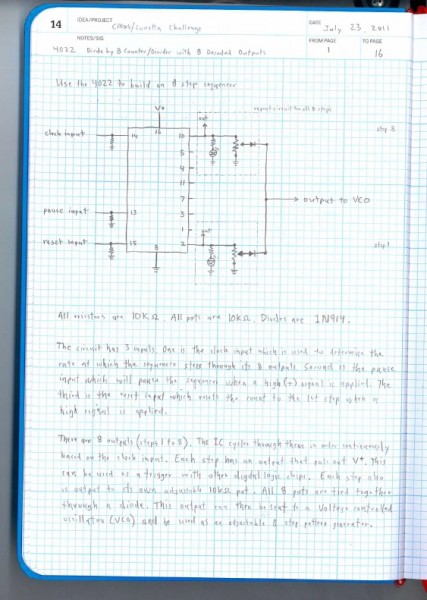 14
IDEA/PROJECT
CMOS/Lunetta Challenge
DATE
July 23, 2011
NOTES/SIG
FROM PAGE
TO PAGE
4022 Divide by 8 Counter/Divider with 8 Decoded Outputs
1
16
Use the 4022 to build an 8 step sequencer
V+
out
repeat circuit for all 8 steps
step 8
clock input
14
16
10
5
4
11
7
pause input
13
3
1
reset input
15
8
2
output to VCO
step 1
All resistors are 10KΩ. All pots are 10KΩ. Diodes are 1N914.
The circuit has 3 inputs. One is the clock input which is used to determine the
rate at which the sequencer steps through its 8 outputs. Second is the pause
input which will pause the sequencer when a high (+) signal is applied. The
third is the reset input which resets the count to the 1st step when a
high signal is applied.
There are 8 outputs (steps 1 to 8). The IC cycles through these in order continuously
based on the clock input. Each step has an output that puts out V+. This
can be used as a trigger with other digital logic chips. Each step also
is output to its own adjustable 10KΩ pot. All 8 pots are tied together
through a diode. This output can then be sent to a Voltage controlled
oscillator (VCO) and be used as an adjustable 8 step pattern generator.